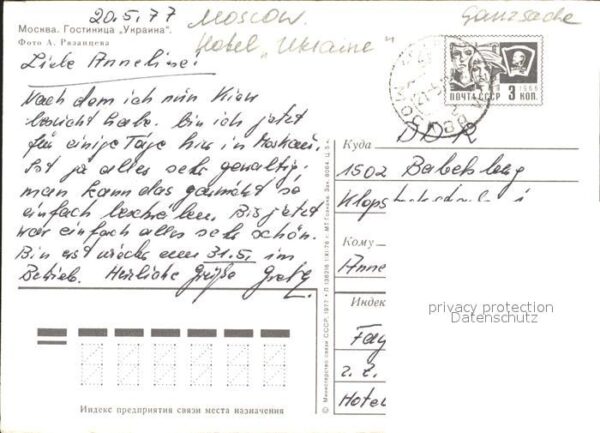 20.5.77
Moscow.
Ganzsache
Москва. Гостиница „Украина".
Hotel "Ukraine"
Фото А. Рязанцева
Liebe Anneliese!
Nach dem ich nun Kiew
besicht habe. Bin ich jetzt
für einige Tage hier in Moskau.
Ist ja alles sehr gewaltig.
man kann das garnicht so
einfach beschreiben. Bis jetzt
war einfach alles sehr schön.
Bin erst wieder am 31.5. im
Betrieb. Herzliche Grüße
ПОЧТА СССР 3 КОП.
1966
МОСКВА
DDR
Куда
1502 Babelsberg
Klops
Кому
Anne
Индекс
privacy protection
Datenschutz
Fay
z. Z.
Hotel
Индекс предприятия связи места назначения
© Министерство связи СССР, 1977
МТ Гознака. Зак. 8064. Ц. 5 к.